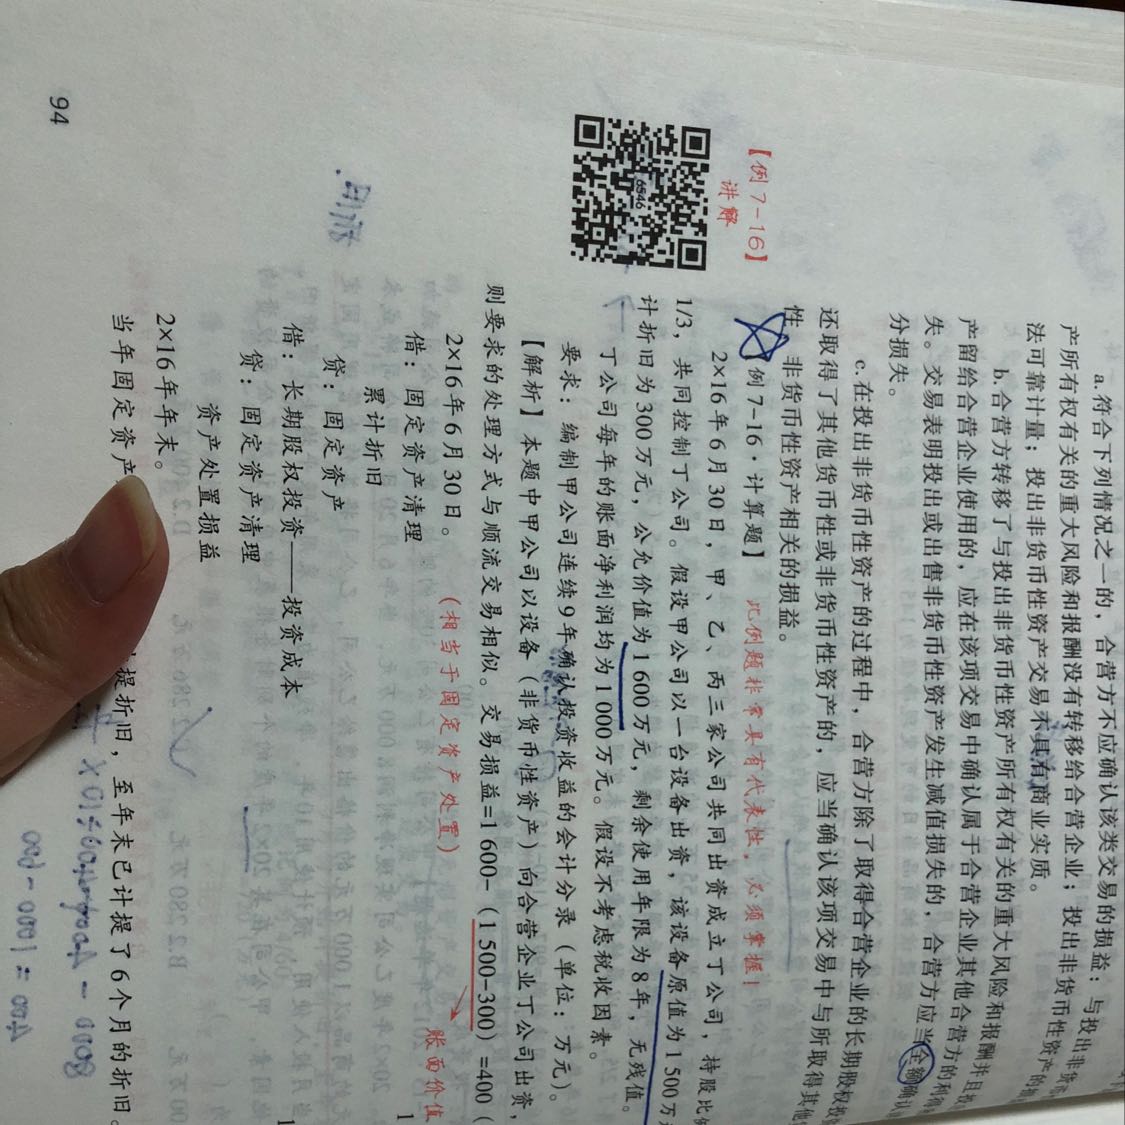 a.符合下列情况之一的，合营方不应确认该类交易的损益：与投出非货
产所有权有关的重大风险和报酬没有转移给合营企业；投出非货币性资产的
法可靠计量；投出非货币性资产交易不具有商业实质。
b.合营方转移了与投出非货币性资产所有权有关的重大风险和报酬并且投
产留给合营企业使用的，应在该项交易中确认属于合营企业其他合营方的利得
失。交易表明投出或出售非货币性资产发生减值损失的，合营方应当全额确认
分损失。
c.在投出非货币性资产的过程中，合营方除了取得合营企业的长期股权投
还取得了其他货币性或非货币性资产的，应当确认该项交易中与所取得其他
性、非货币性资产相关的损益。
【例7-16】
讲解
6546
例7-16·计算题】 此例题非常具有代表性，必须掌握！
2×16年6月30日，甲、乙、丙三家公司共同出资成立丁公司，持股比
1/3，共同控制丁公司。假设甲公司以一台设备出资，该设备原值为1 500万
计折旧为300万元，公允价值为1 600万元，剩余使用年限为8年，无残值。
丁公司每年的账面净利润均为1 000万元。假设不考虑税收因素。
要求：编制甲公司连续9年确认投资收益的会计分录（单位：万元）。
【解析】本题中甲公司以设备（非货币性资产）向合营企业丁公司出资，
则要求的处理方式与顺流交易相似。交易损益=1 600-（1 500-300）=400（
2×16年6月30日。 （相当于固定资产处置） 账面价值
借：固定资产清理 1
累计折旧
贷：固定资产
借：长期股权投资——投资成本
贷：固定资产清理
资产处置损益
2×16年年末。
当年固定资产 提折旧，至年末已计提了6个月的折旧。
94